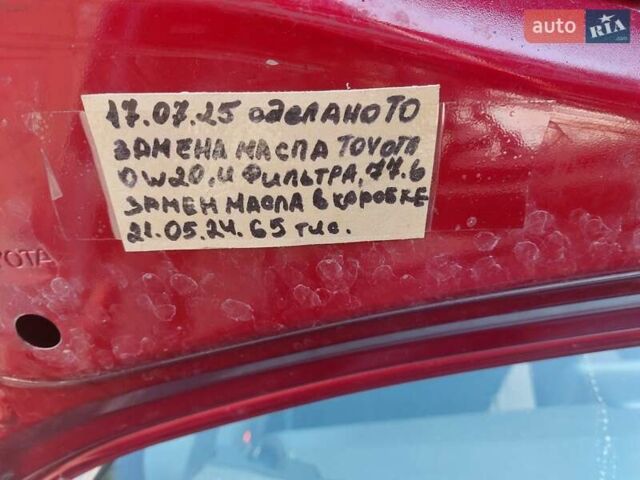 auto RIA.com
17.07.25 сделано ТО
ЗАМЕНА МАСЛА TOYOTA
0W20, И ФИЛЬТРА, 77.6
ЗАМЕН МАСЛА В КАРОБКЕ
21.05.24. 65 тис.
YOTA